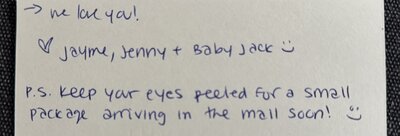 → we love you!
♡ Jayme, Jenny + Baby Jack :)
P.S. Keep your eyes peeled for a small
package arriving in the mail soon! :)